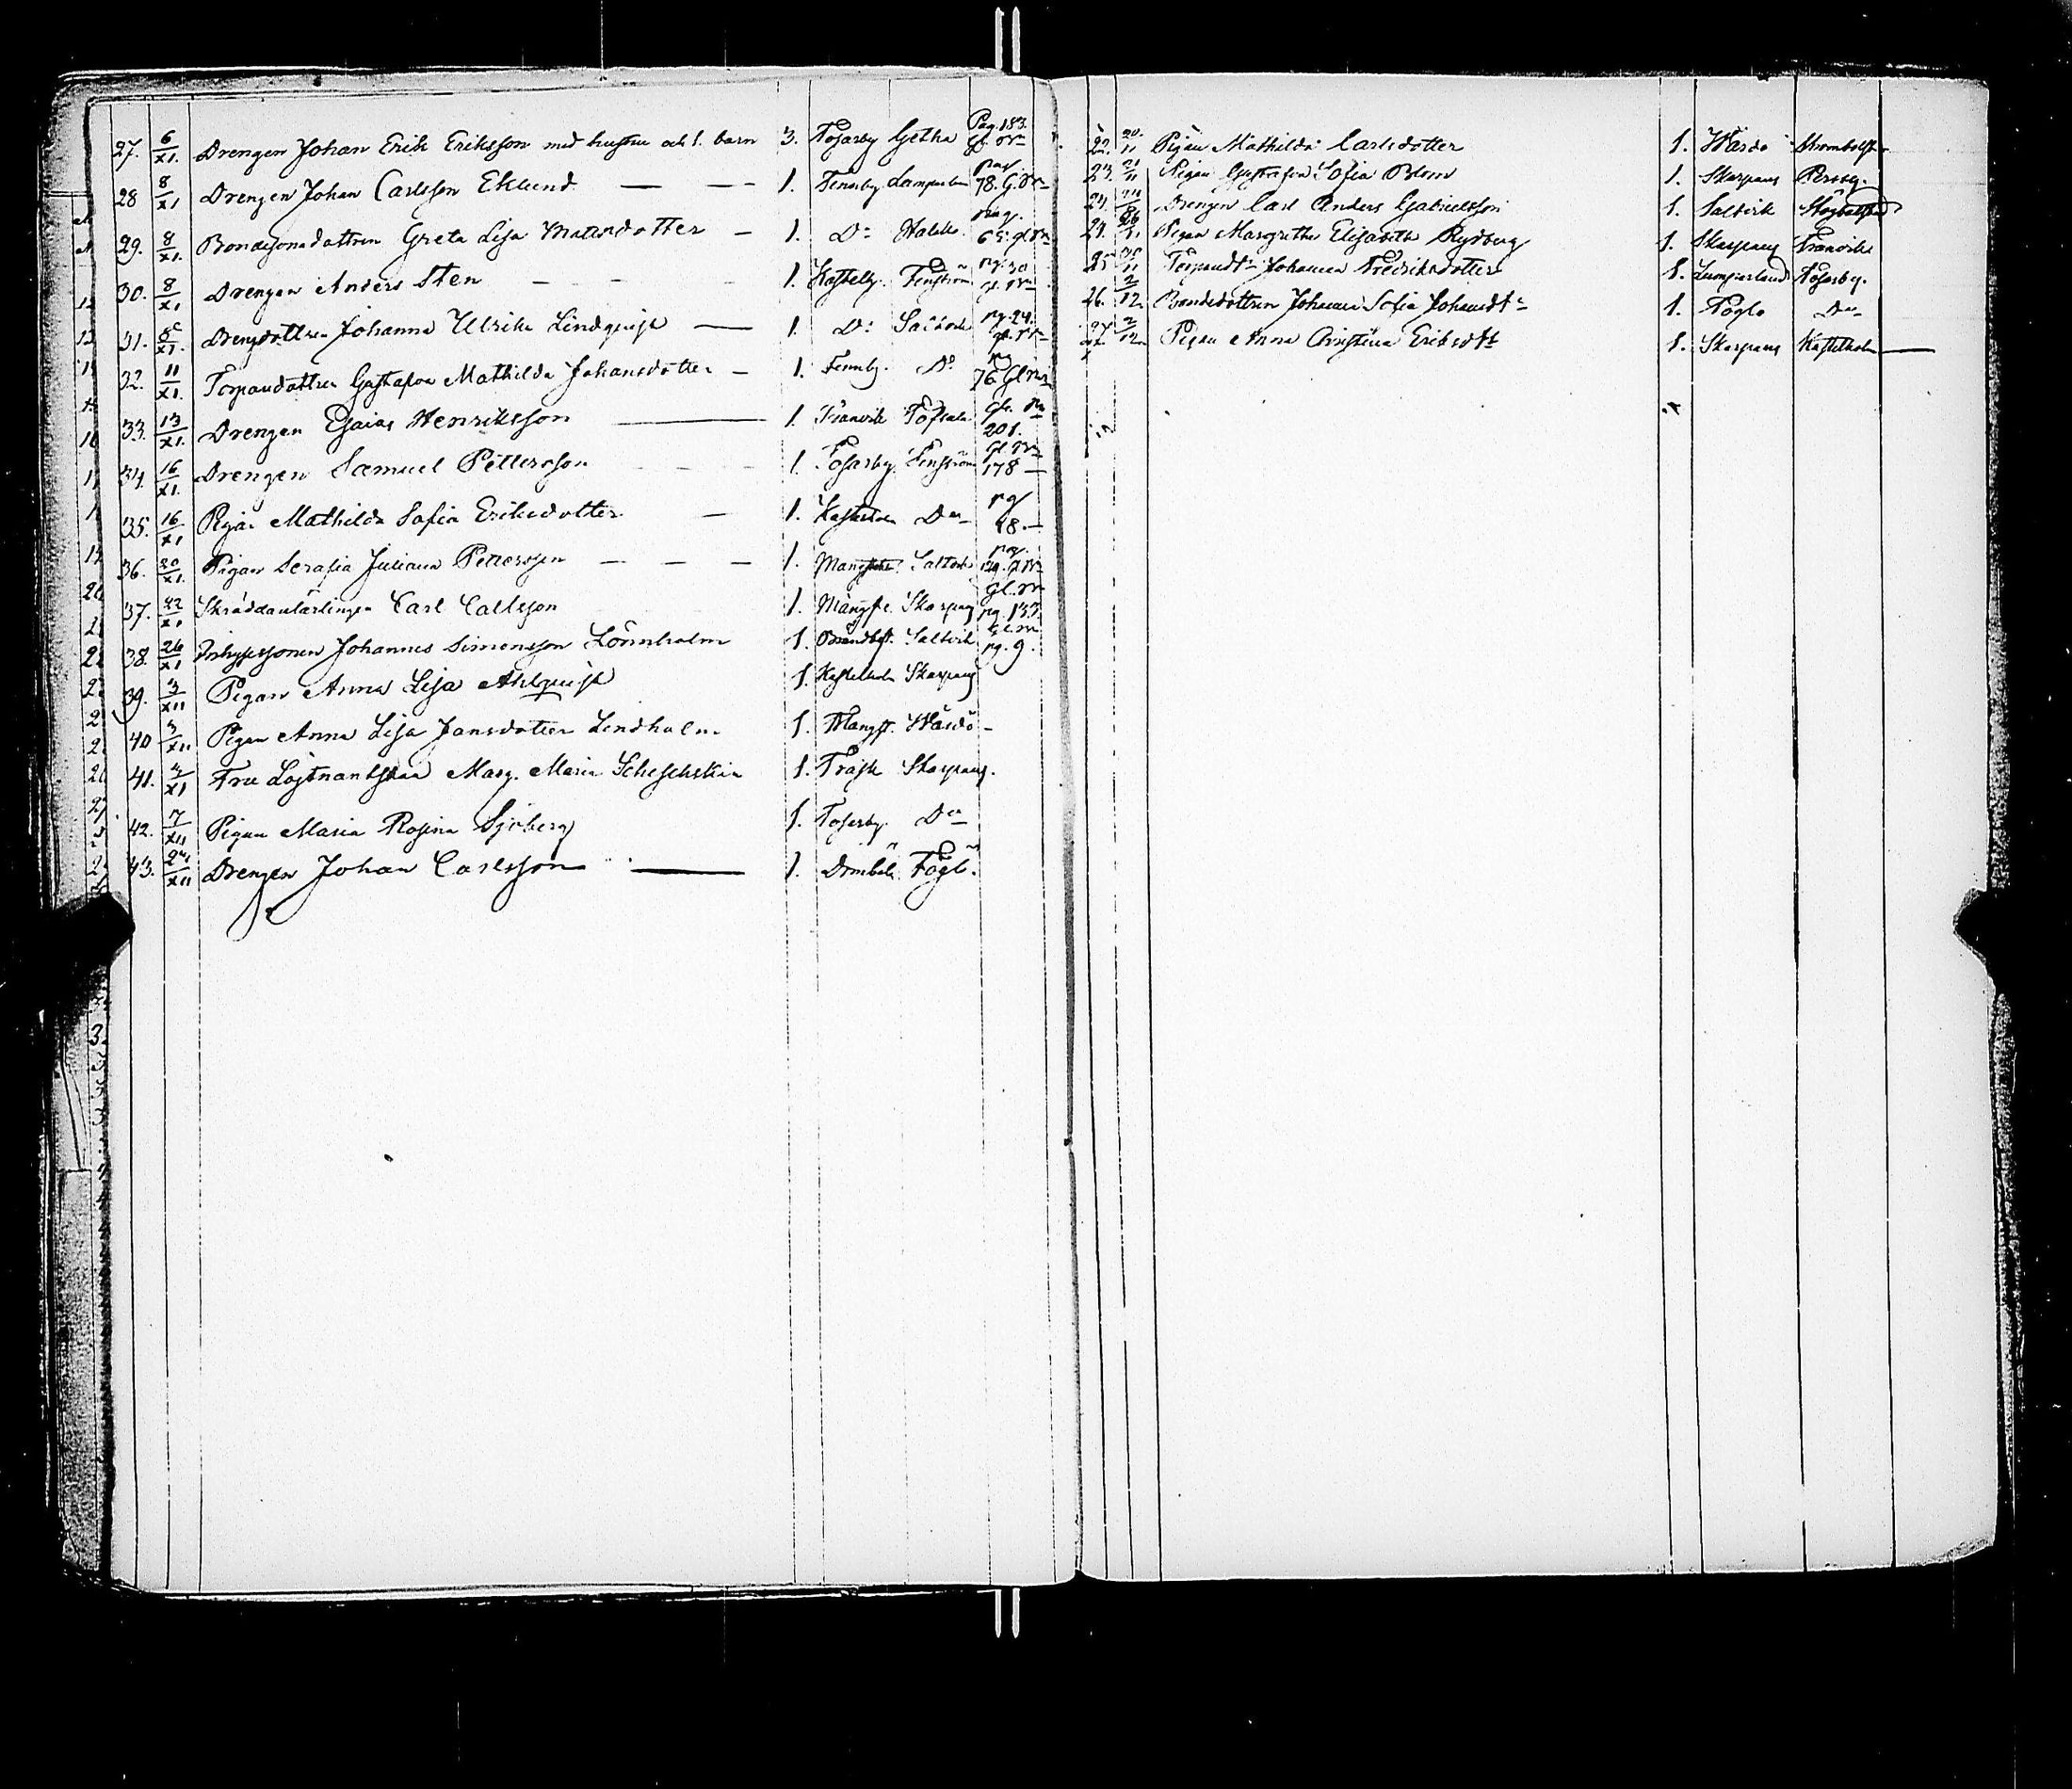 27. 6/XI. Drengen Johan Erik Eriksson med hustru och 1. barn 3. Tosarby Getha Pag. 183.
28 8/XI Drengen Johan Carlsson Eklund — — — 1. Fennby Lumparlan pag 78.
29. 8/XI. Bondesonadottren Greta Lisa Mattsdotter — 1. Do pag. 65.
30. 8/XI Drengen Anders Sten — — — 1. Kastelh. Finström pg. 30
31. 8/XI. Drengdottren Johanna Ulrika Lindquist — 1. Do Saltvik pg. 24.
32. 11/XI. Torpardottren Gustafva Mathilda Johansdotter — 1. Fennby. Do pg 76
33. 13/XI. Drengen Esaias Henriksson — 1. Tranvik Töfsala 201.
34. 16/XI. Drengen Samuel Pettersson — 1. Tosarby. Finström 178 —
35. 16/XI Pigan Mathilda Sofia Eriksdotter — 1. Kastelholm Do pg 48. —
36. 20/XI. Pigan Serafia Juliana Pettersson — — — 1. Mangstekt. Saltvik pag.
37. 22/XI Skräddarlärlingen Carl Carlsson 1. Mångst. Skarpans pg. 133
38. 26/XI Inhysessonen Johannes Simonsson Lönnholm 1. Saltvik pg. 9.
39. 3/XII Pigan Anna Lisa Ahlquist 1. Kastelholm Skarpans
40 3/XII. Pigan Anna Lisa Jansdotter Lindholm 1. Mangst. Wårdö —
41. 4/XI Fru Löjtnantskan Marg. Maria 1. Träsk Skarpans.
42. 7/XII Pigan Maria Rosina Sjöberg 1. Tosarby. Do
43. 24/XII Drengen Johan Carlsson — 1. Fögl.
22. 20/11 Pigan Mathilda Carlsdotter 1. Wårdö Strombolst
23. 21/11 Pigan Gustafva Sofia Blom 1. Skarpans Persby.
24. Drengen Carl Anders Gabrielsson 1. Saltvik Högbolstad
24. 26/11 Pigan Margretha Elisabeth Rydberg 1. Skarpans Tranvik
25 30/11 Torpardtr Johanna Fredriksdotter 1. Lumparland Tosarby.
26. 2/12. Bondedottren Johanna Sofia Johansdtr 1. Föglö Do
27 2/12. Pigan Anna Christina Eriksdtr 1. Skarpans Kastelholm —